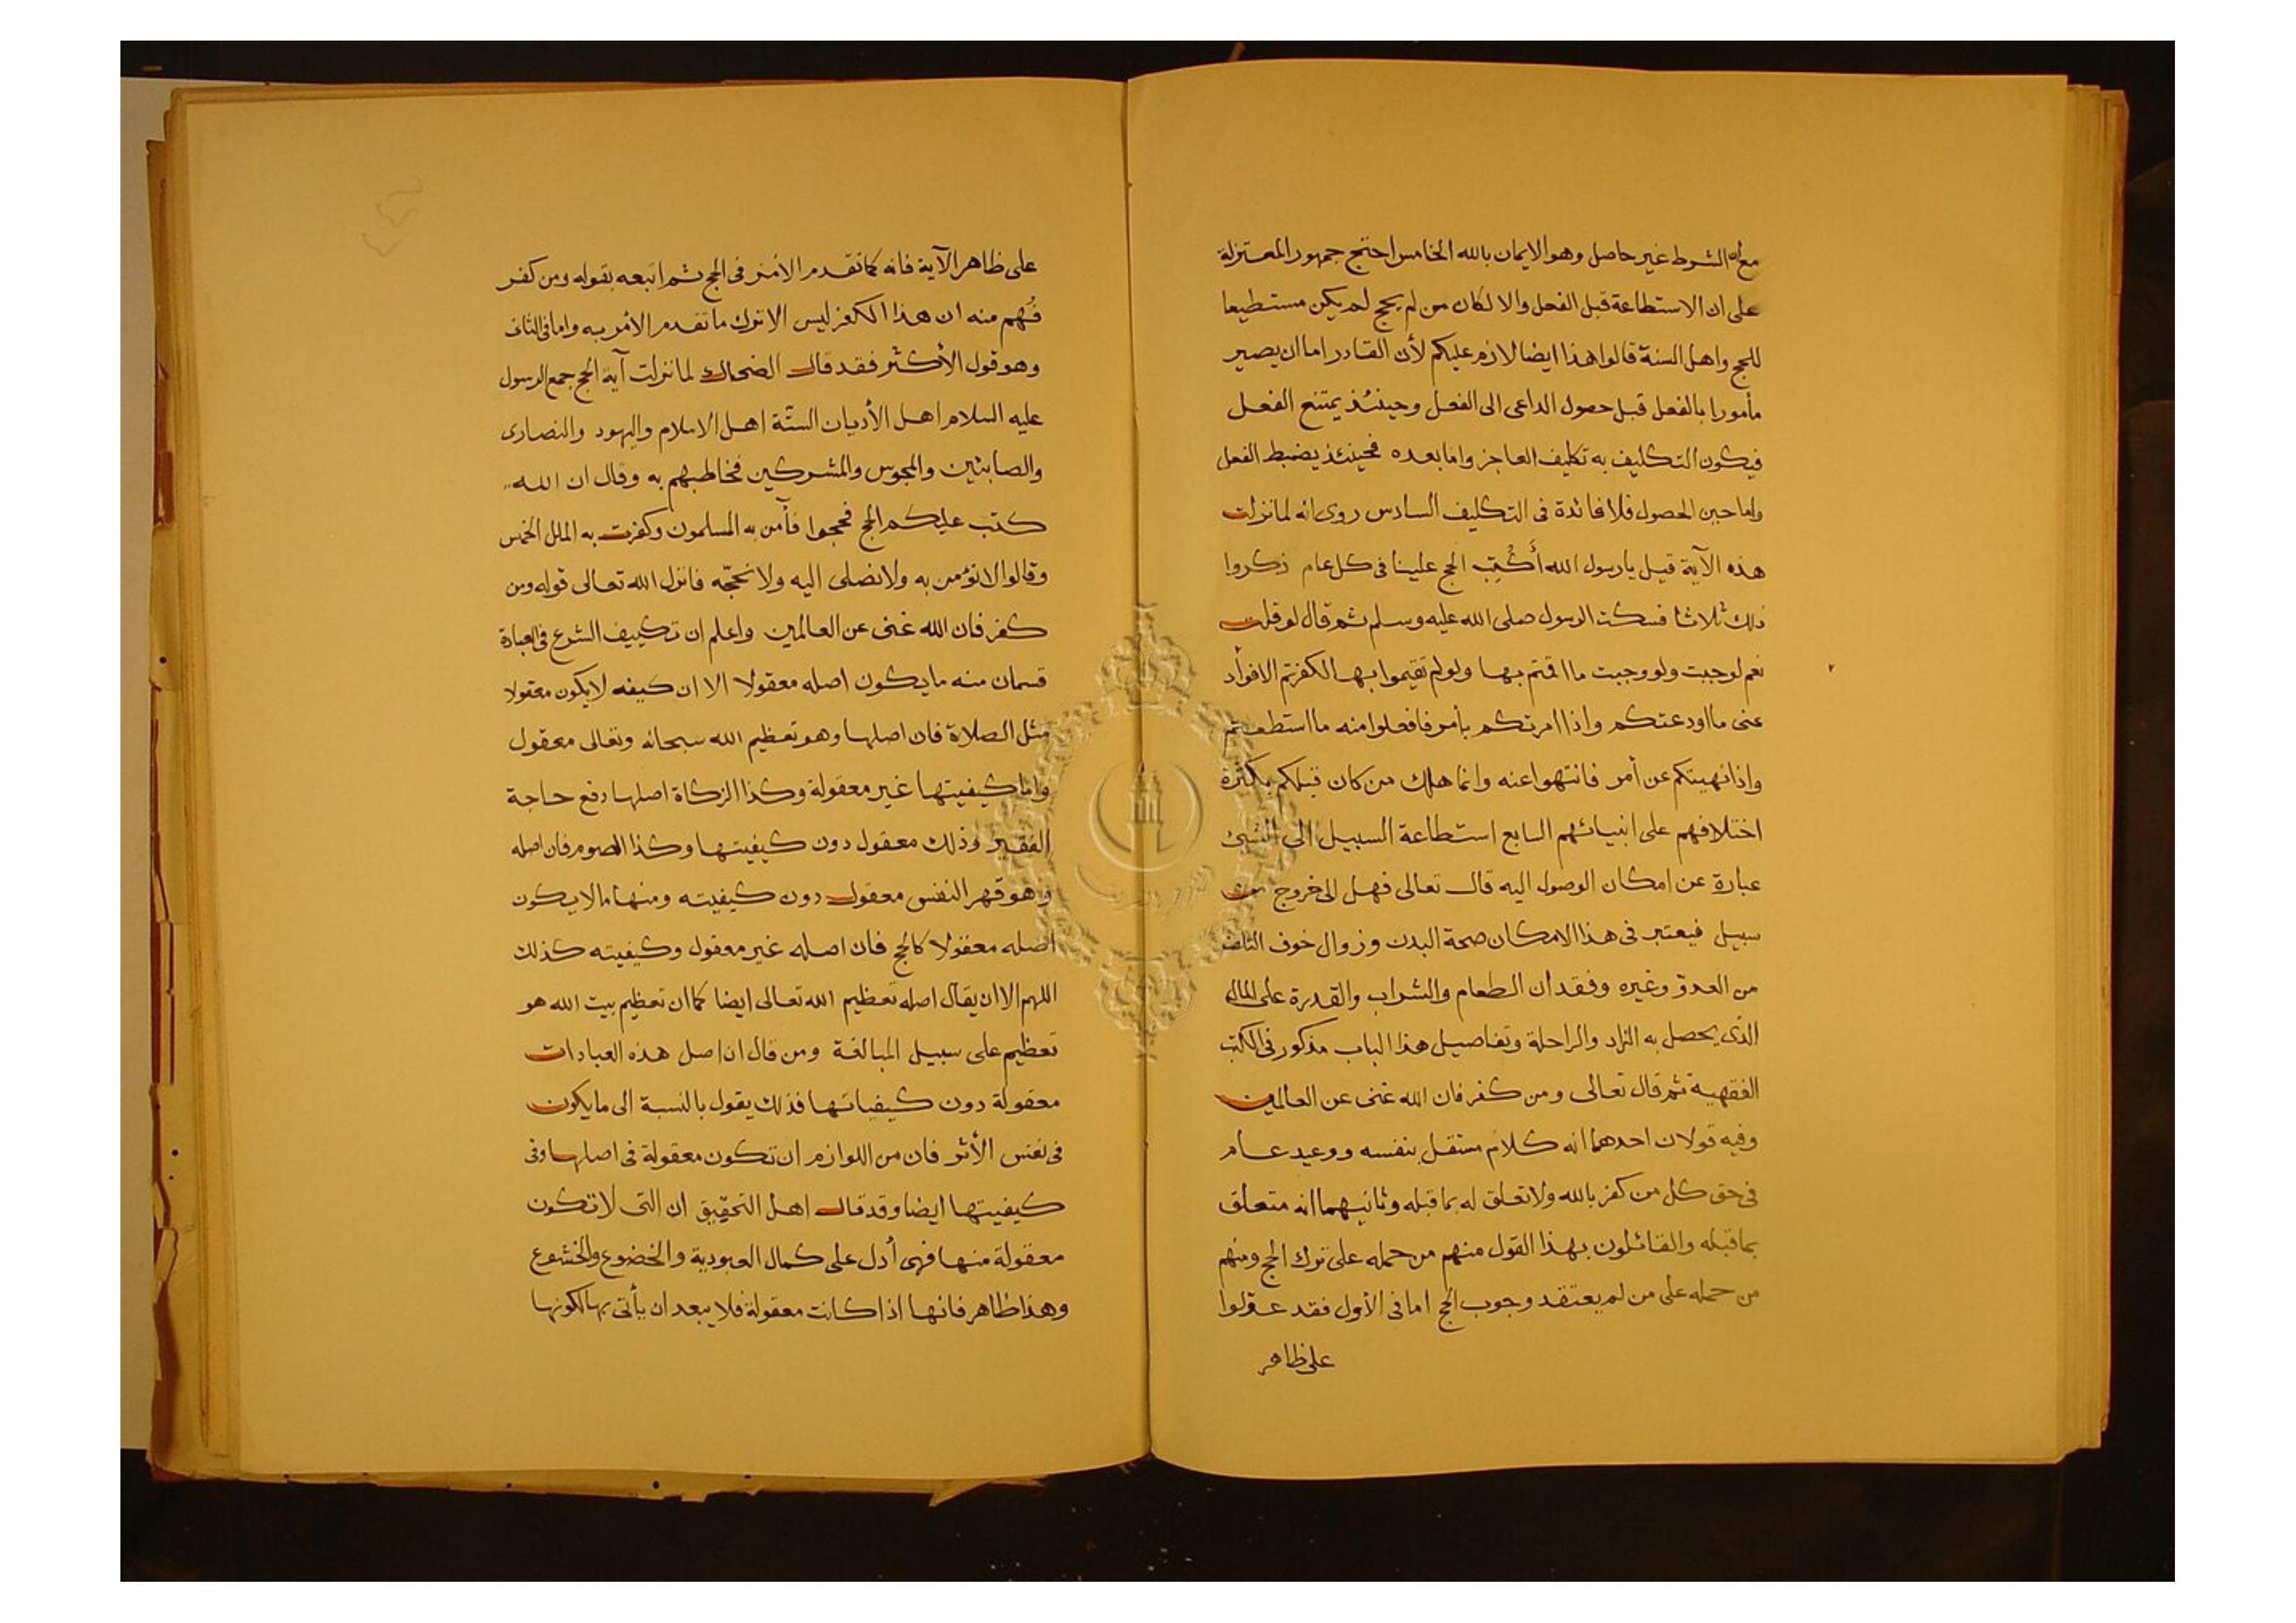 مع ان الشرط غير حاصل وهو الايمان بالله الخامس احتج جمهور المعتزلة
على ان الاستطاعة قبل الفعل والا لكان من لم يحج لم يكن مستطيعا
للحج واهل السنة قالوا هذا ايضا لازم عليكم لأن القادر اما ان يصير
مأمورا بالفعل قبل حصول الداعى الى الفعل وحينئذ يمتنع الفعل
فيكون التكليف به تكليف العاجز واما بعده فحينئذ يضبط الفعل
واما حين الحصول فلا فائدة فى التكليف السادس روى انه لما نزلت
هذه الآية قيل يا رسول الله أَكُتِبَ الحج علينا فى كل عام ذكروا
ذلك ثلاثا فسكت الرسول صلى الله عليه وسلم ثم قال لو قلت
نعم لوجبت ولو وجبت ما اقمتم بها ولو لم تقيموا بها لكفرتم الا فوأد
عنى ما اودعتكم واذا امرتكم بأمر فافعلوا منه ما استطعتم
واذا نهيتكم عن أمر فانتهوا عنه وانما هلك من كان قبلكم بكثرة
اختلافهم على انبيائهم السابع استطاعة السبيل الى الشيئ
عبارة عن امكان الوصول اليه قال تعالى فهل الى خروج من
سبيل فيعتبر فى هذا الامكان صحة البدن وزوال خوف التلف
من العدوّ وغيره وفقدان الطعام والشراب والقدرة على المال
الذى يحصل به الزاد والراحلة وتفاصيل هذا الباب مذكور فى الكتب
الفقهية ثم قال تعالى ومن كفر فان الله غنى عن العالمين
وفيه قولان احدهما انه كلام مستقل بنفسه ووعيد عام
فى حق كل من كفر بالله ولا تعلق له بما قبله وثانيهما انه متعلق
بما قبله والقائلون بهذا القول منهم من حمله على ترك الحج ومنهم
من حمله على من لم يعتقد وجوب الحج اما فى الأول فقد عوّلوا
على ظاهر
على ظاهر الآية فانه كما تقدم الأمر فى الحج ثم اتبعه بقوله ومن كفر
فُهم منه ان هذا الكفر ليس الا ترك ما تقدم الأمر به واما فى الثانى
وهو قول الأكثر فقد قال الضحاك لما نزلت آية الحج جمع الرسول
عليه السلام اهل الأديان الستّة اهل الاسلام واليهود والنصارى
والصابئين والمجوس والمشركين فخاطبهم به وقال ان الله
كتب عليكم الحج فحجوا فآمن به المسلمون وكفرت به الملل الخمس
وقالوا لا نؤمن به ولا نصلى اليه ولا نحجّه فانزل الله تعالى قوله ومن
كفر فان الله غنى عن العالمين واعلم ان تكييف الشرع فى العبادة
قسمان منه ما يكون اصله معقولا الا ان كيفه لا يكون معقولا
مثل الصلاة فان اصلها وهو تعظيم الله سبحانه وتعالى معقول
واما كيفيتها غير معقولة وكذا الزكاة اصلها دفع حاجة
الفقير وذلك معقول دون كيفيتها وكذا الصوم فان اصله
وهو قهر النفس معقول دون كيفيته ومنها ما لا يكون
اصله معقولا كالحج فان اصله غير معقول وكيفيته كذلك
اللهم الا ان يقال اصله تعظيم الله تعالى ايضا كما ان تعظيم بيت الله هو
تعظيم على سبيل المبالغة ومن قال ان اصل هذه العبادات
معقولة دون كيفياتها فذلك يقول بالنسبة الى ما يكون
فى نفس الأثر فان من اللوازم ان تكون معقولة فى اصلها وفى
كيفيتها ايضا وقد قال اهل التحقيق ان التى لا تكون
معقولة منها فهى أدل على كمال العبودية والخضوع والخشوع
وهذا ظاهر فانها اذا كانت معقولة فلا يبعد ان يأتى بها لكونها